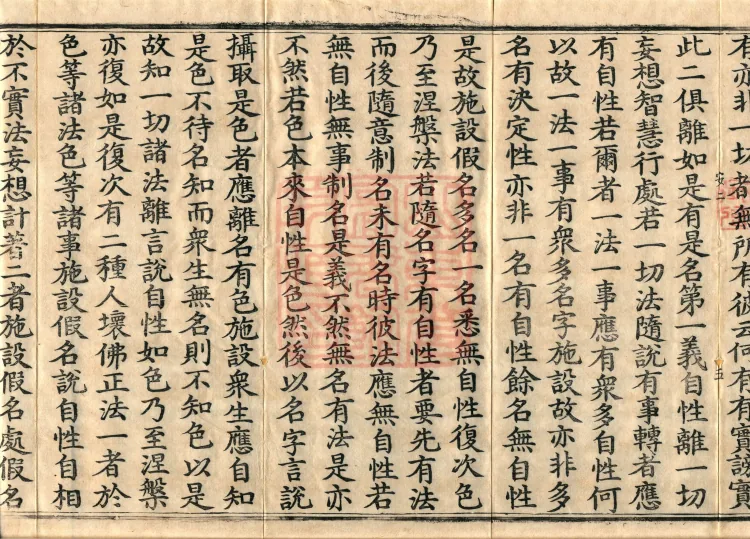 有亦非一切者無所有彼云何有有實談實
此二俱離如是有是名第一義自性離一切
妄想智慧行處若一切法隨說有事轉者應
有自性若爾者一法一事應有衆多自性何
以故一法一事有衆多名字施設故亦非多
名有決定性亦非一名有自性餘名無自性
是故施設假名多名一名悉無自性復次色
乃至涅槃法若隨名字有自性者要先有法
而後隨意制名未有名時彼法應無自性若
無自性無事制名是義不然無名有法是亦
不然若色本來自性是色然後以名字言說
攝取是色者應離名有色施設衆生應自知
是色不待名知而衆生無名則不知色以是
故知一切諸法離言說自性如色乃至涅槃
亦復如是復次有二種人壞佛正法一者於
色等諸法色等諸事施設假名說自性自相
於不實法妄想計著二者施設假名處假名
五